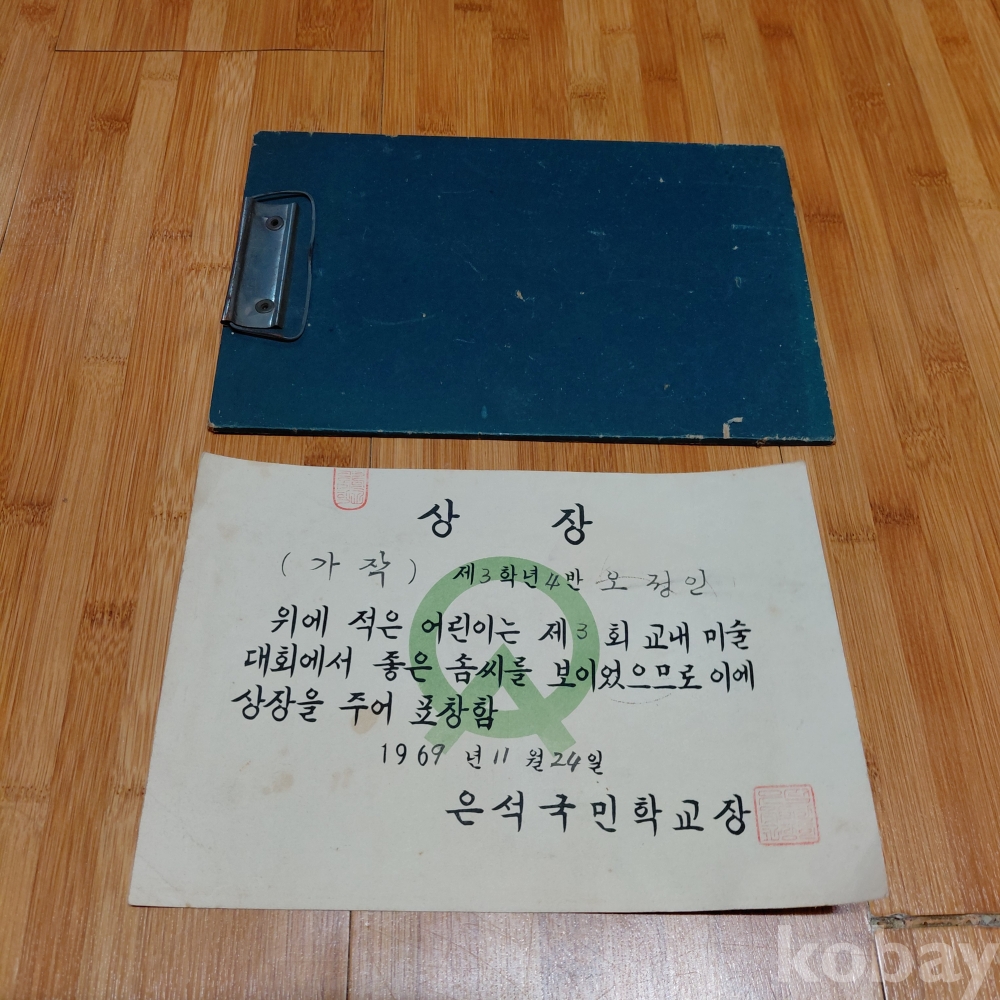 상 장
(가작) 제3학년4반 오정인
위에 적은 어린이는 제3회 교내 미술
대회에서 좋은 솜씨를 보이었으므로 이에
상장을 주어 표창함
1969년 11월 24일
은석국민학교장
kobay